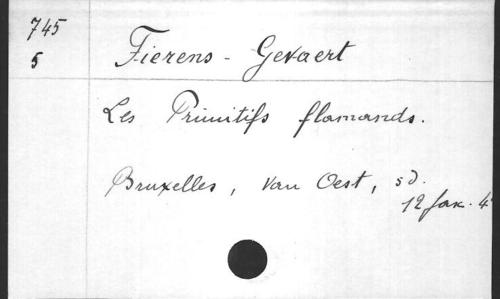 745
5
Fierens - Gevaert
Les Primitifs flamands.
Bruxelles, Van Oest, s d.
12 fax. 4°